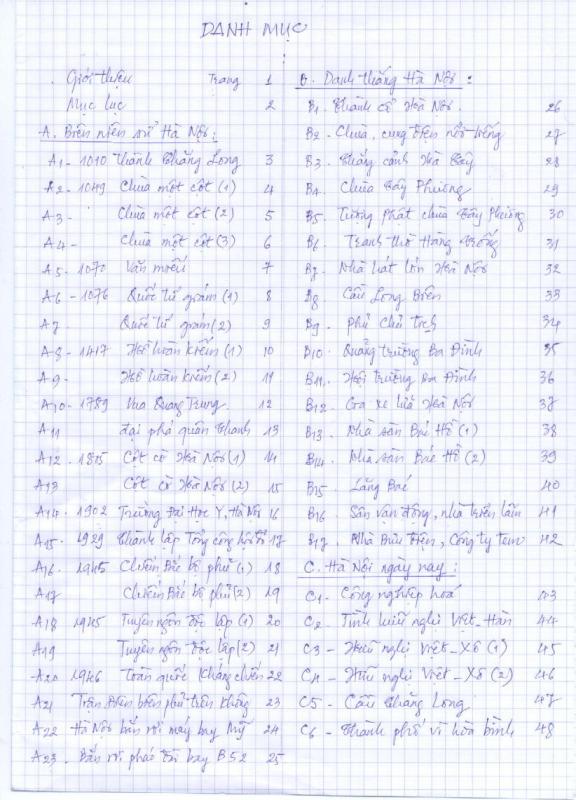 DANH MỤC
Giới thiệu Trang 1
Mục lục 2
A. Biên niên sử Hà Nội:
A1 - 1010 Thành Thăng Long 3
A2 - 1049 Chùa một cột (1) 4
A3 - Chùa một cột (2) 5
A4 - Chùa một cột (3) 6
A5 - 1070 Văn miếu 7
A6 - 1076 Quốc tử giám (1) 8
A7 Quốc tử giám (2) 9
A8 - 1417 Hồ hoàn kiếm (1) 10
A9 - Hồ hoàn kiếm (2) 11
A10 - 1789 Vua Quang Trung 12
A11 Đại phá quân Thanh 13
A12 - 1805 Cột cờ Hà Nội (1) 14
A13 Cột cờ Hà Nội (2) 15
A14 - 1902 Trường Đại Học Y, Hà Nội 16
A15 - 1929 Thành lập Tổng công hội đỏ 17
A16 - 1945 Chiếm Bắc bộ phủ (1) 18
A17 Chiếm Bắc bộ phủ (2) 19
A18 1945 Tuyên ngôn độc lập (1) 20
A19 Tuyên ngôn độc lập (2) 21
A20 1946 Toàn quốc kháng chiến 22
A21 Trận Điện biên phủ trên không 23
A22 Hà Nội bắn rơi máy bay Mỹ 24
A23 - Bắn rơi pháo đài bay B52 25
B. Danh thắng Hà Nội:
B1 - Thành cổ Hà Nội. 26
B2 - Chùa, cung điện nổi tiếng 27
B3 - Thắng cảnh Hà Tây 28
B4 - Chùa Tây Phương 29
B5 - Tượng phật chùa Tây Phương 30
B6 - Tranh thờ Hàng Trống 31
B7 - Nhà hát lớn Hà Nội 32
B8 - Cầu Long Biên 33
B9 - Phủ Chủ tịch 34
B10 - Quảng trường Ba Đình 35
B11 - Hội trường Ba Đình 36
B12 - Ga xe lửa Hà Nội 37
B13 - Nhà sàn Bác Hồ (1) 38
B14 - Nhà sàn Bác Hồ (2) 39
B15 - Lăng Bác 40
B16 - Sân vận động, nhà triển lãm 41
B17 - Nhà Bưu Điện, Công ty tem 42
C. Hà Nội ngày nay:
C1 - Công nghiệp hoá 43
C2 - Tình hữu nghị Việt - Hàn 44
C3 - Hữu nghị Việt - Xô (1) 45
C4 - Hữu nghị Việt - Xô (2) 46
C5 - Cầu Thăng Long 47
C6 - Thành phố vì hòa bình 48